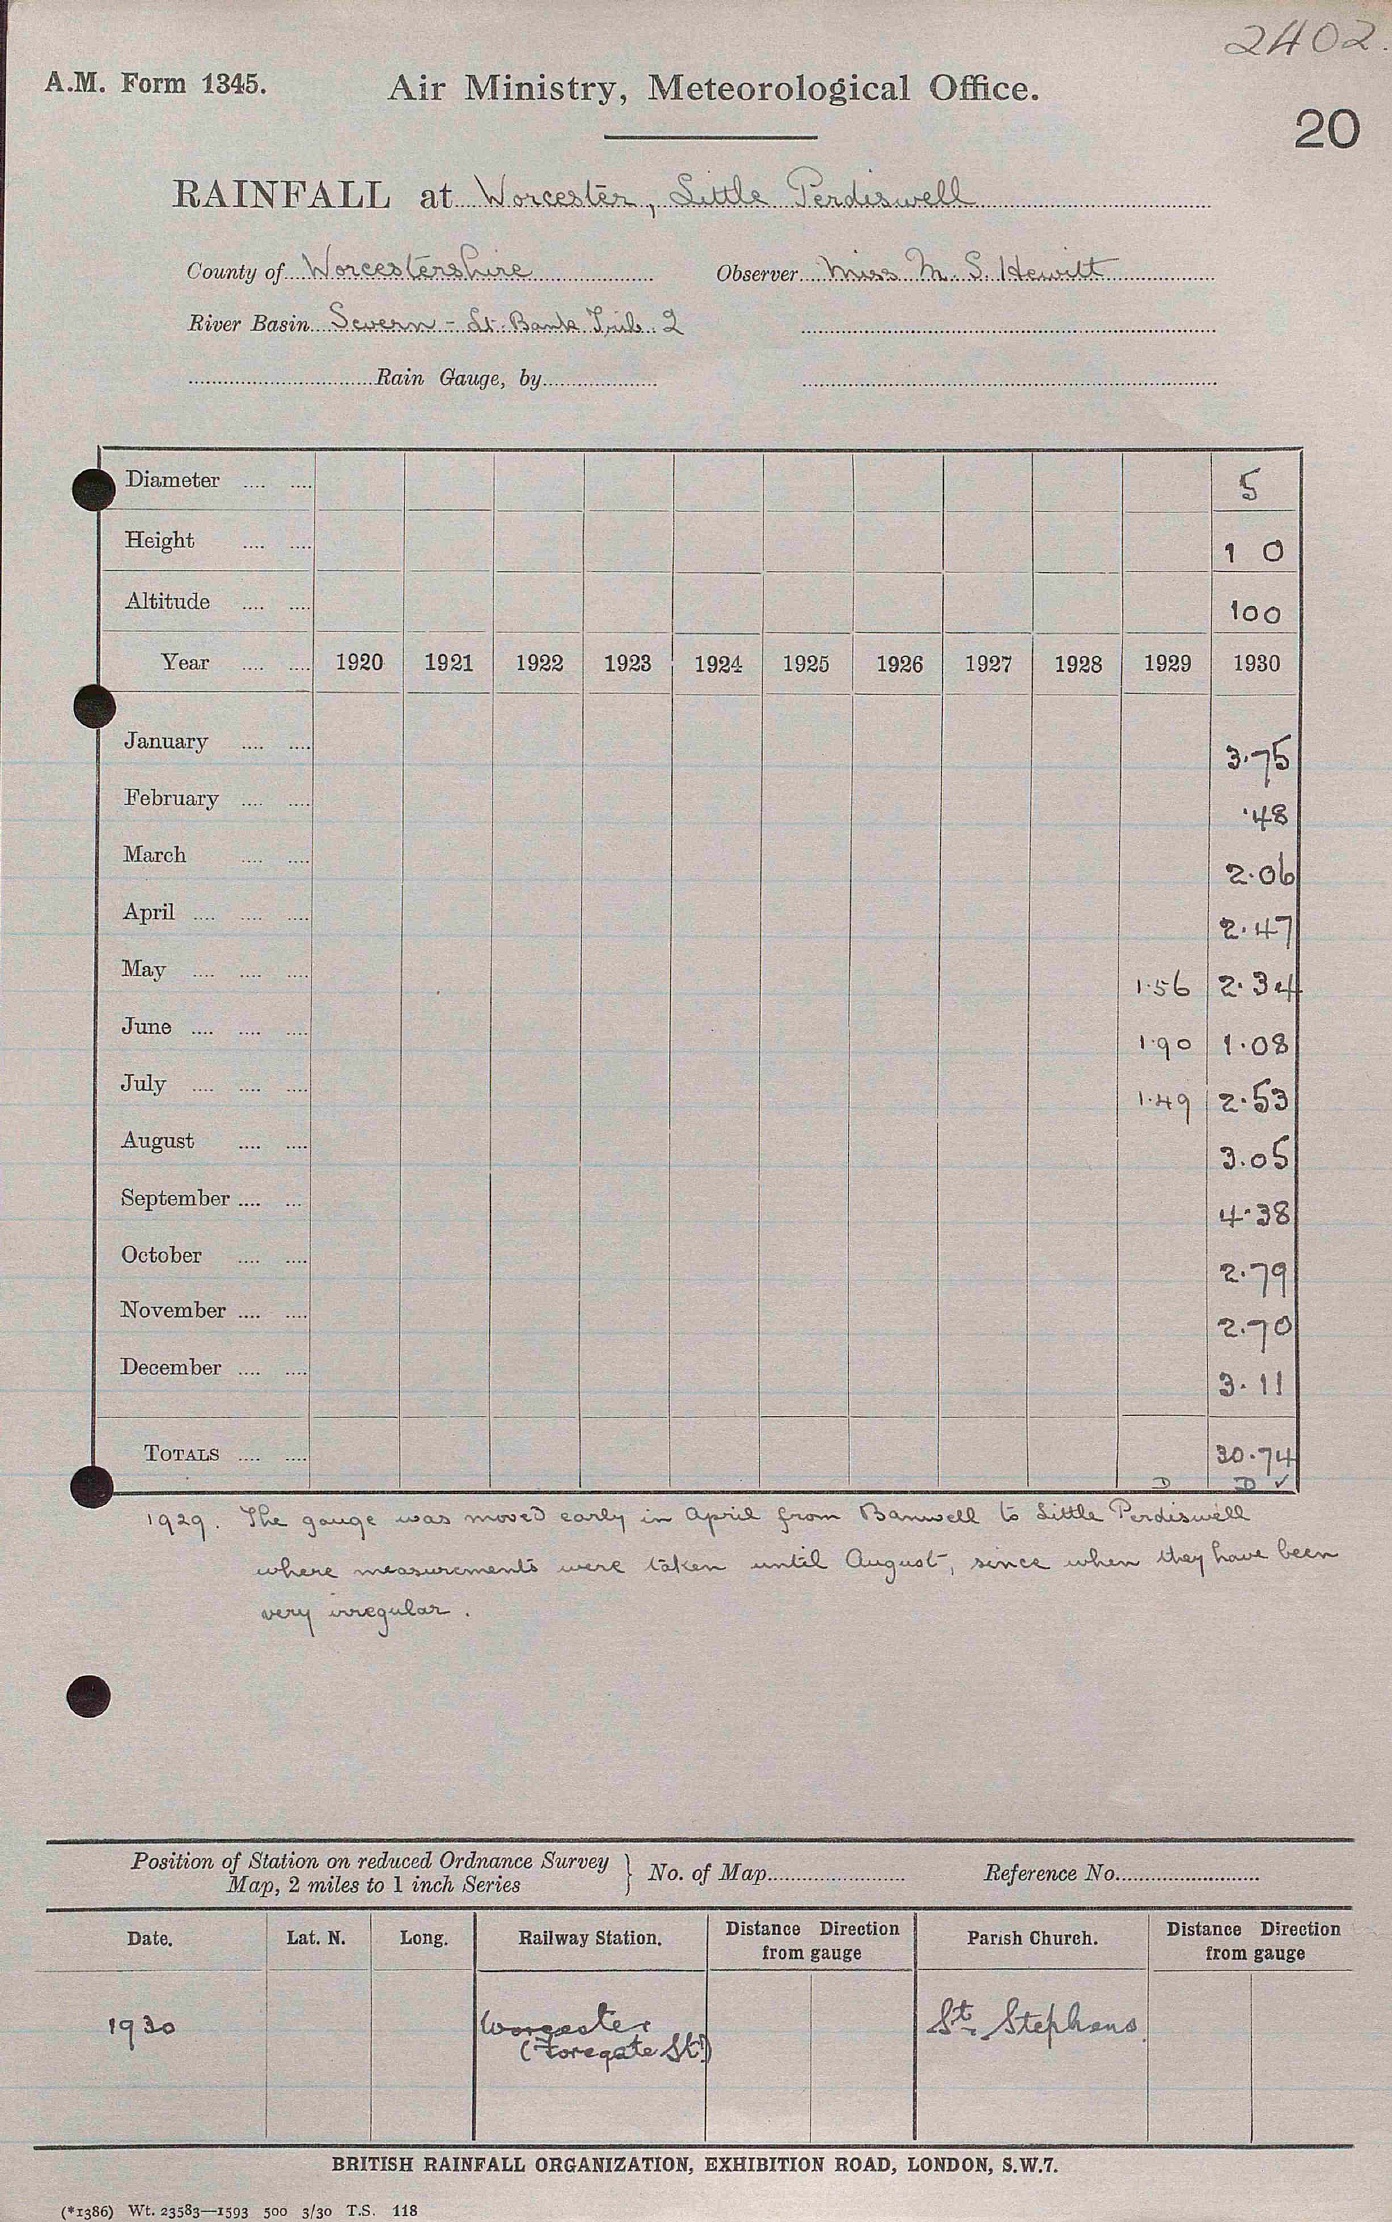 2402.
A.M. Form 1345. Air Ministry, Meteorological Office.
20
RAINFALL at Worcester, Little Perdiswell
County of Worcestershire Observer Miss M. S. Hewitt
River Basin Severn - Lt. Bank Trib. 2
Rain Gauge, by
Diameter .... .... 5
Height .... .... 1 0
Altitude .... .... 100
Year .... .... 1920 1921 1922 1923 1924 1925 1926 1927 1928 1929 1930
January .... .... 3.75
February .... .... .48
March .... .... 2.06
April .... .... .... 2.47
May .... .... .... 1.56 2.34
June .... .... .... 1.90 1.08
July .... .... .... 1.49 2.53
August .... .... 3.05
September .... .... 4.38
October .... .... 2.79
November .... .... 2.70
December .... .... 3.11
TOTALS .... .... 30.74
D D ✓
1929. The gauge was moved early in April from Banwell to Little Perdiswell
where measurements were taken until August, since when they have been
very irregular.
Position of Station on reduced Ordnance Survey
Map, 2 miles to 1 inch Series } No. of Map Reference No.
Date. Lat. N. Long. Railway Station. Distance Direction from gauge Parish Church. Distance Direction from gauge
1930 Worcester St. Stephens
(Foregate St.)
BRITISH RAINFALL ORGANIZATION, EXHIBITION ROAD, LONDON, S.W.7.
(*1386) Wt. 23583—1593 500 3/30 T.S. 118